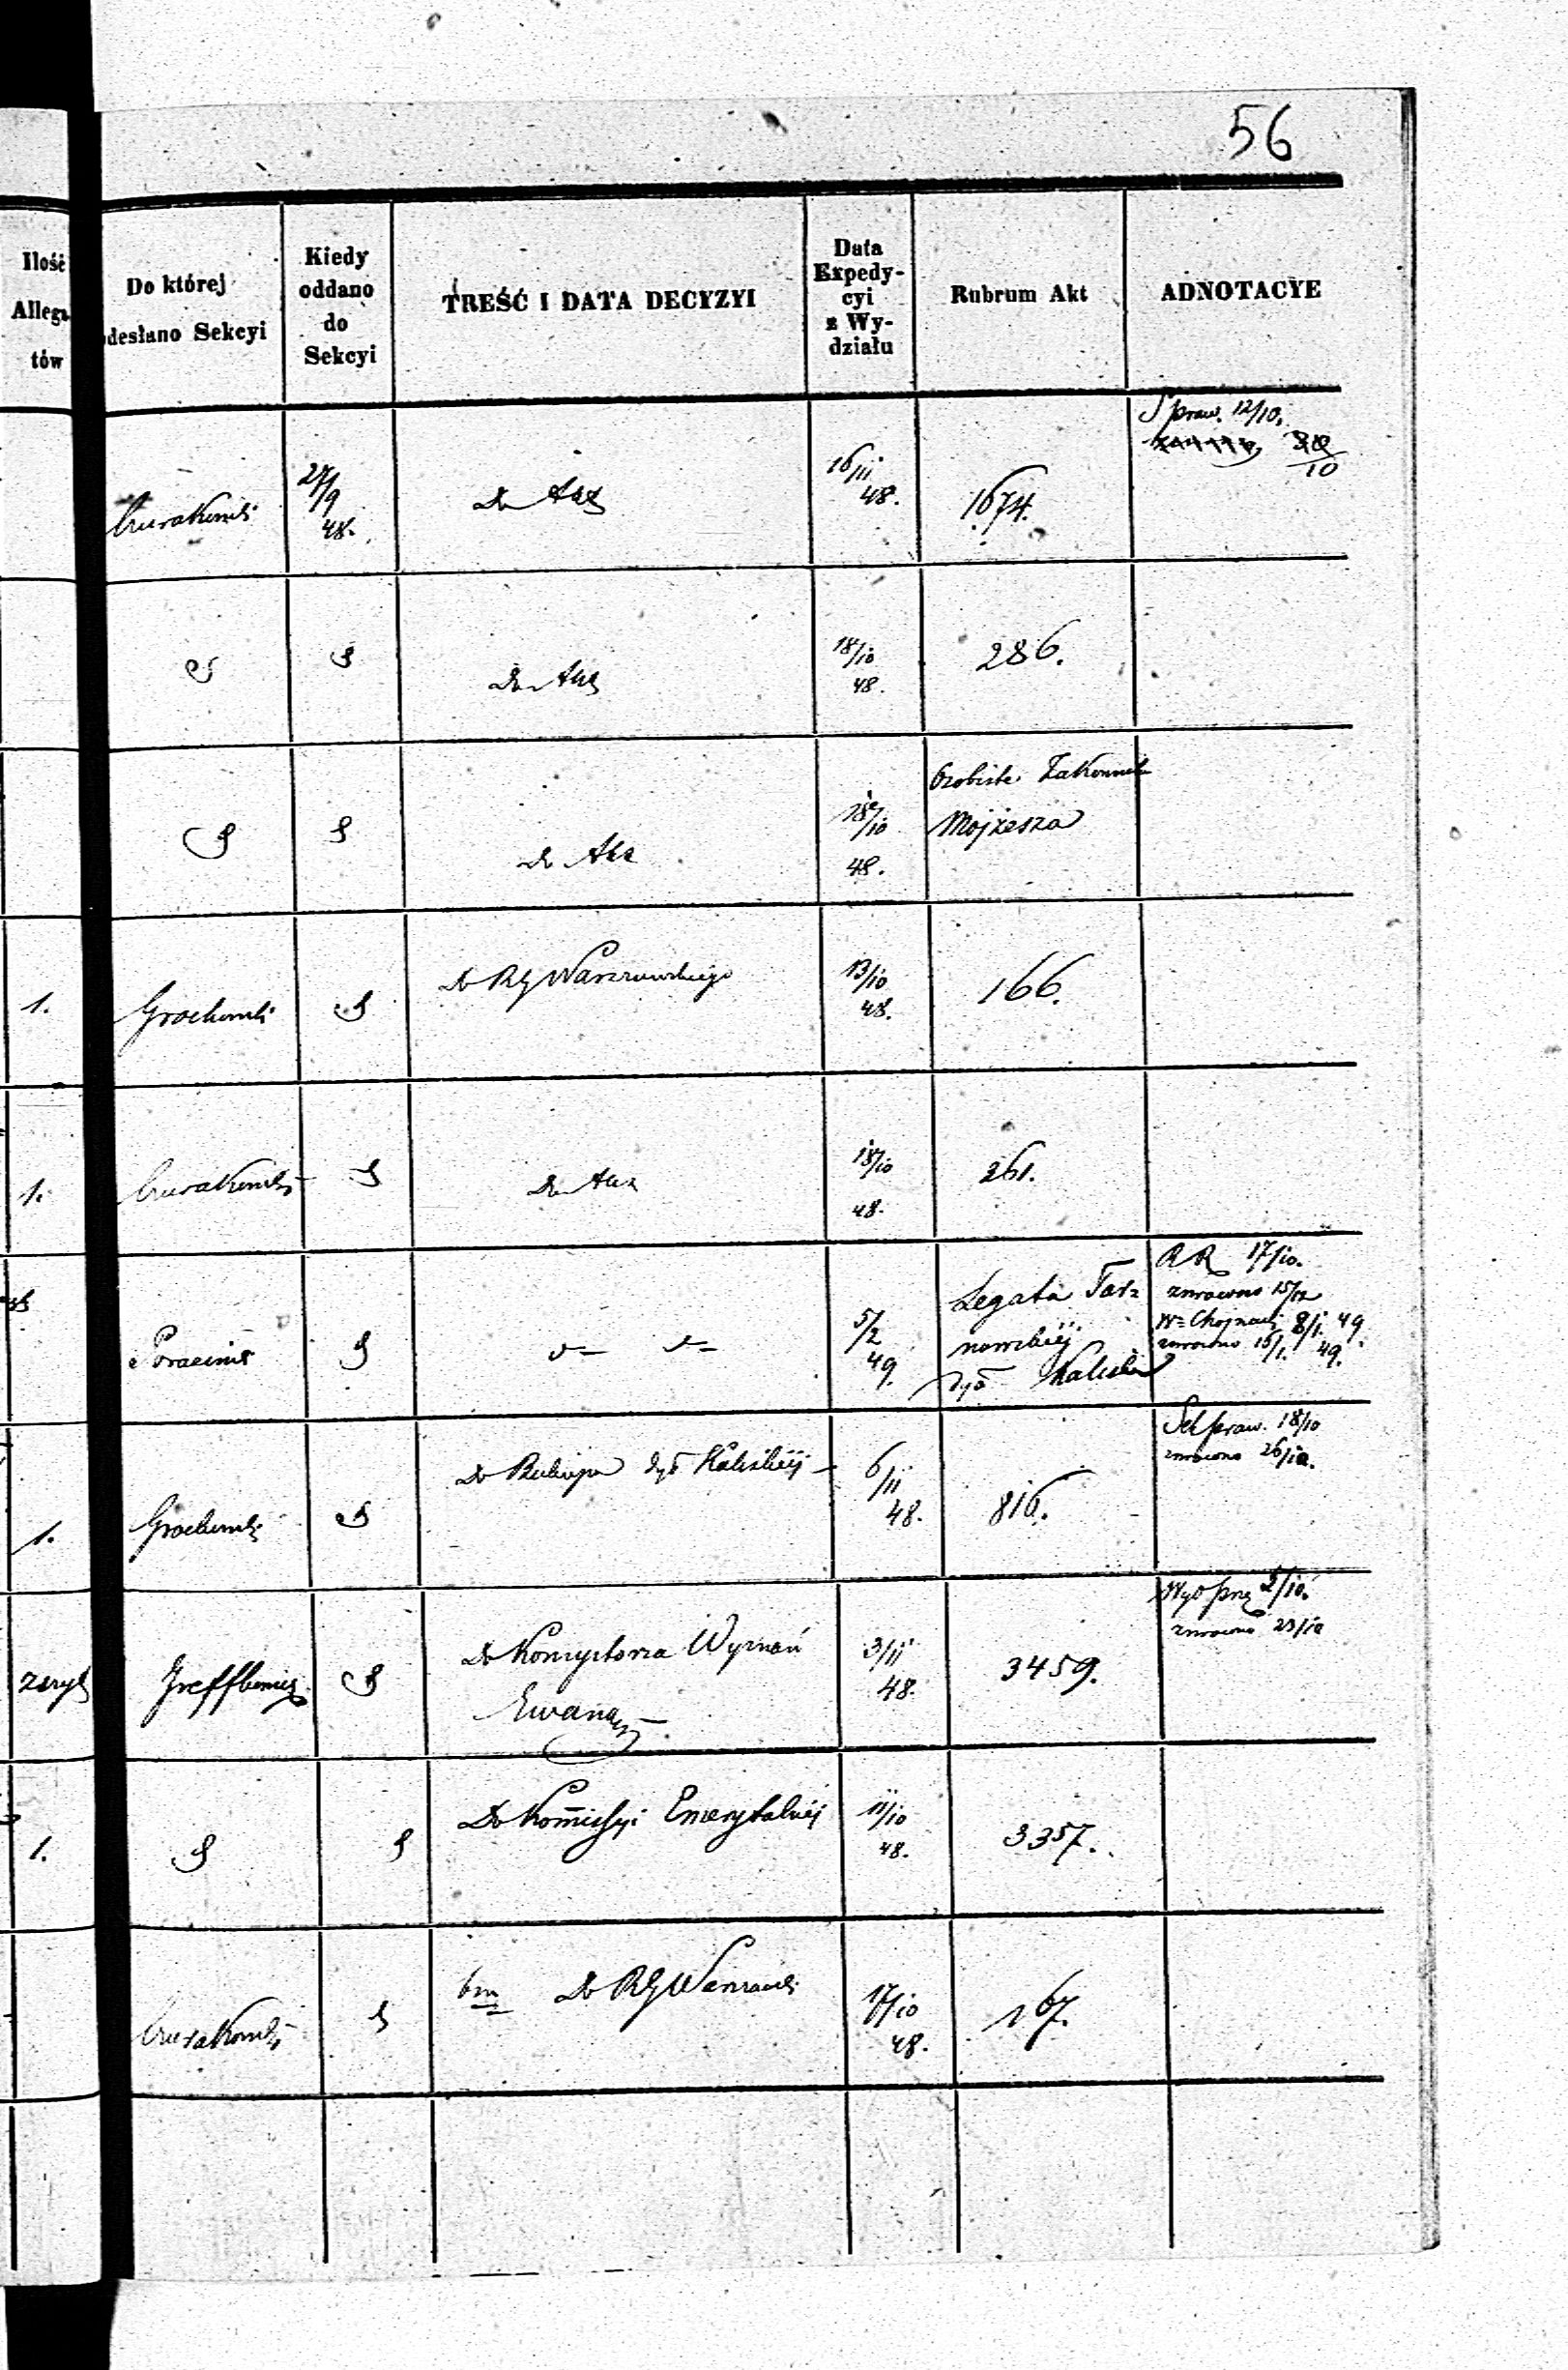 56
Ilość Allega tów
Do której odesłano Sekcyi
Kiedy oddano do Sekcyi
TREŚĆ I DATA DECYZYI
Data Expedy- cyi z Wy- działu
Rubrum Akt
ADNOTACYE
27/9 48. Do Akt 16/11 48. 1674. Spraw. 12/10.
10
Do Akt 18/10 48. 286.
Do Akt 18/10 48. Osobiste Zakonnika
Mojżesza
1. Grochowski Do RG Warszawskiego 13/10 48. 166.
1. Do Akt 18/10 48. 261.
5/2 49. Legata Tar=
nowskiéj
dyó Kaliska
RR 17/10.
zwrócono 15/12
W= Chojnacki 8/1. 49.
zwrócono 15/1. 49.
1. Grochowski Do Biskupa dyó Kaliskiéj 6/11 48. 816. Sek praw. 18/10
zwrócono 26/10.
zszyt Do Konsystorza Wyznań
Ewang 3/11 48. 3459. 2/10.
zwrócono 23/10
1. Do Kommissyi Emerytalnéj 11/10 48. 3357.
Do RG Warszawski 17/10 48. 167.